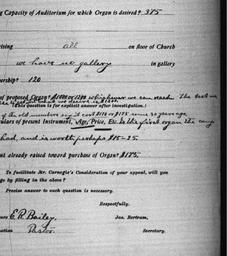 ng Capacity of Auditorium for which Organ is desired? 375
rising all on floor of Church
we have no gallery in gallery
ership? 120
of proposed Organ? $1000 or 1200 whichever we can reach. The best we
(This question is for explicit answer after investigation.)
of the old members say it cost $110 or $115 some 20 years ago
culars of present Instrument, Age, Price, Etc. is the first organ the cong
had, and is worth perhaps $15-25.
nt already raised toward purchase of Organ? $175.
To facilitate Mr. Carnegie's Consideration of your appeal, will you
ge by filling in the above?
Precise answer to each question is necessary.
Respectfully,
E. R. Bailey, Jas. Bertram,
ation Pastor. Secretary.